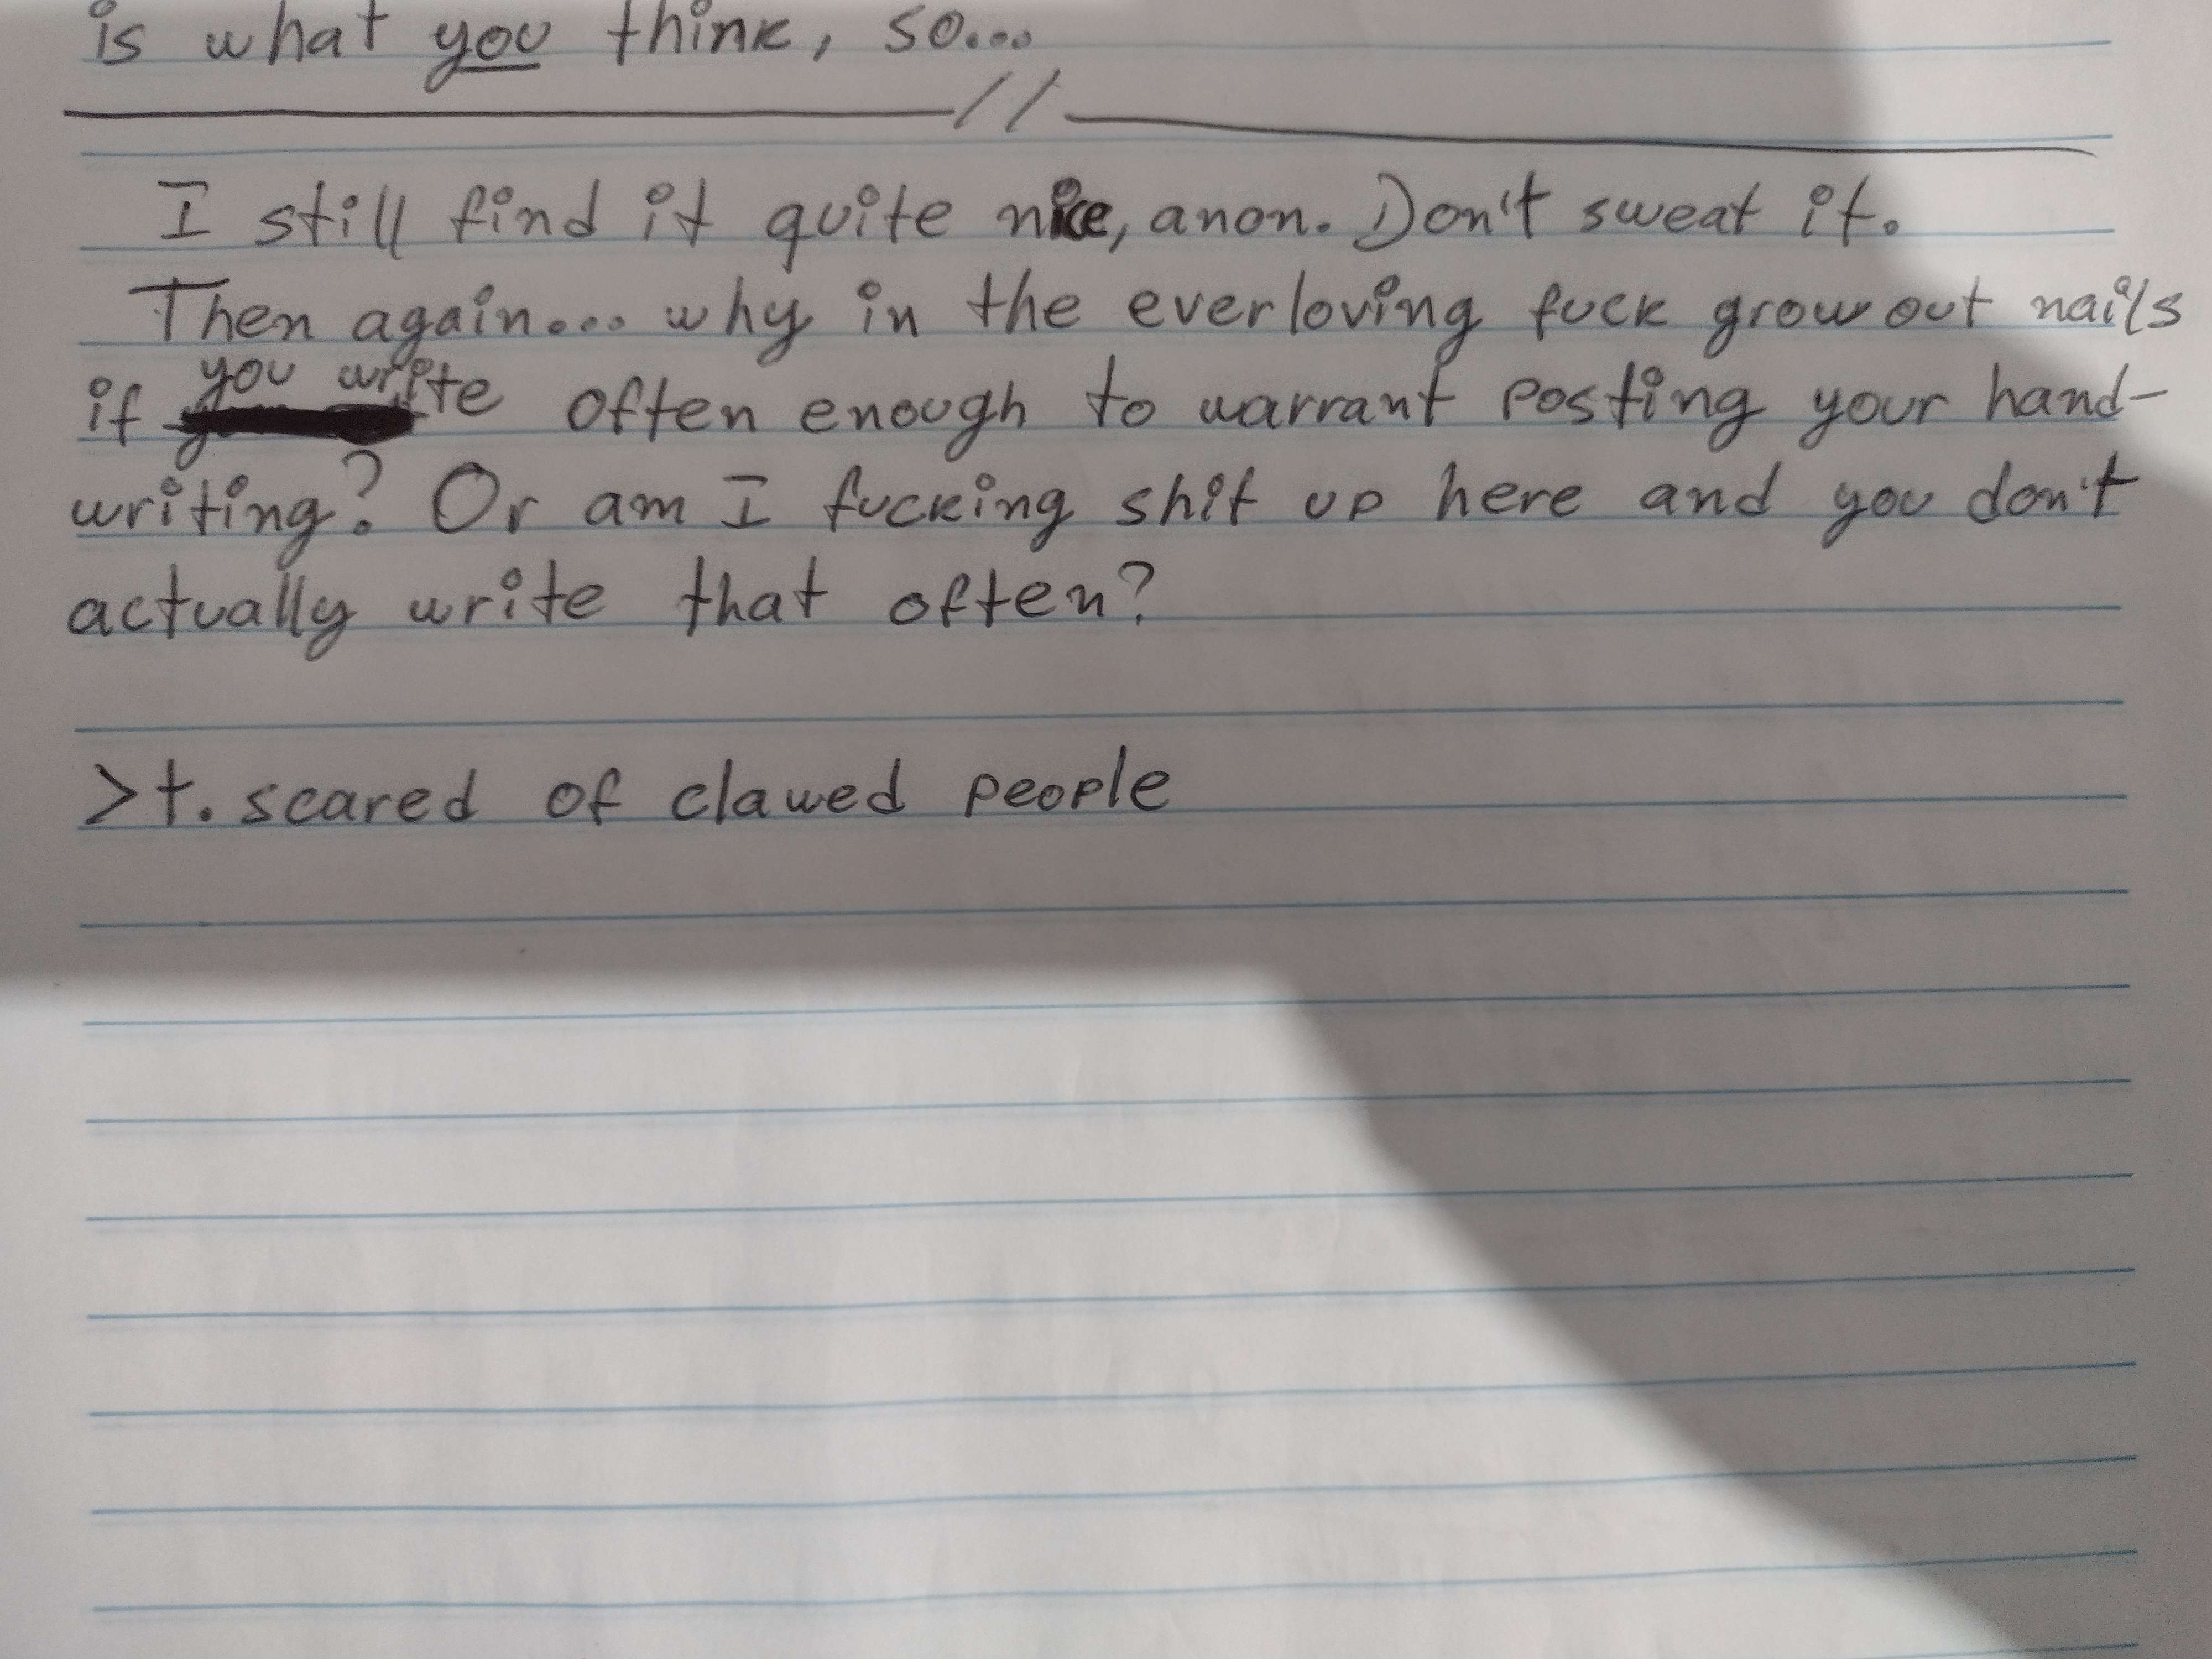 is what you think, so...
//
I still find it quite nice, anon. Don't sweat it.
Then again... why in the everloving fuck grow out nails
if you write often enough to warrant posting your hand-
writing? Or am I fucking shit up here and you don't
actually write that often?
>t. scared of clawed people